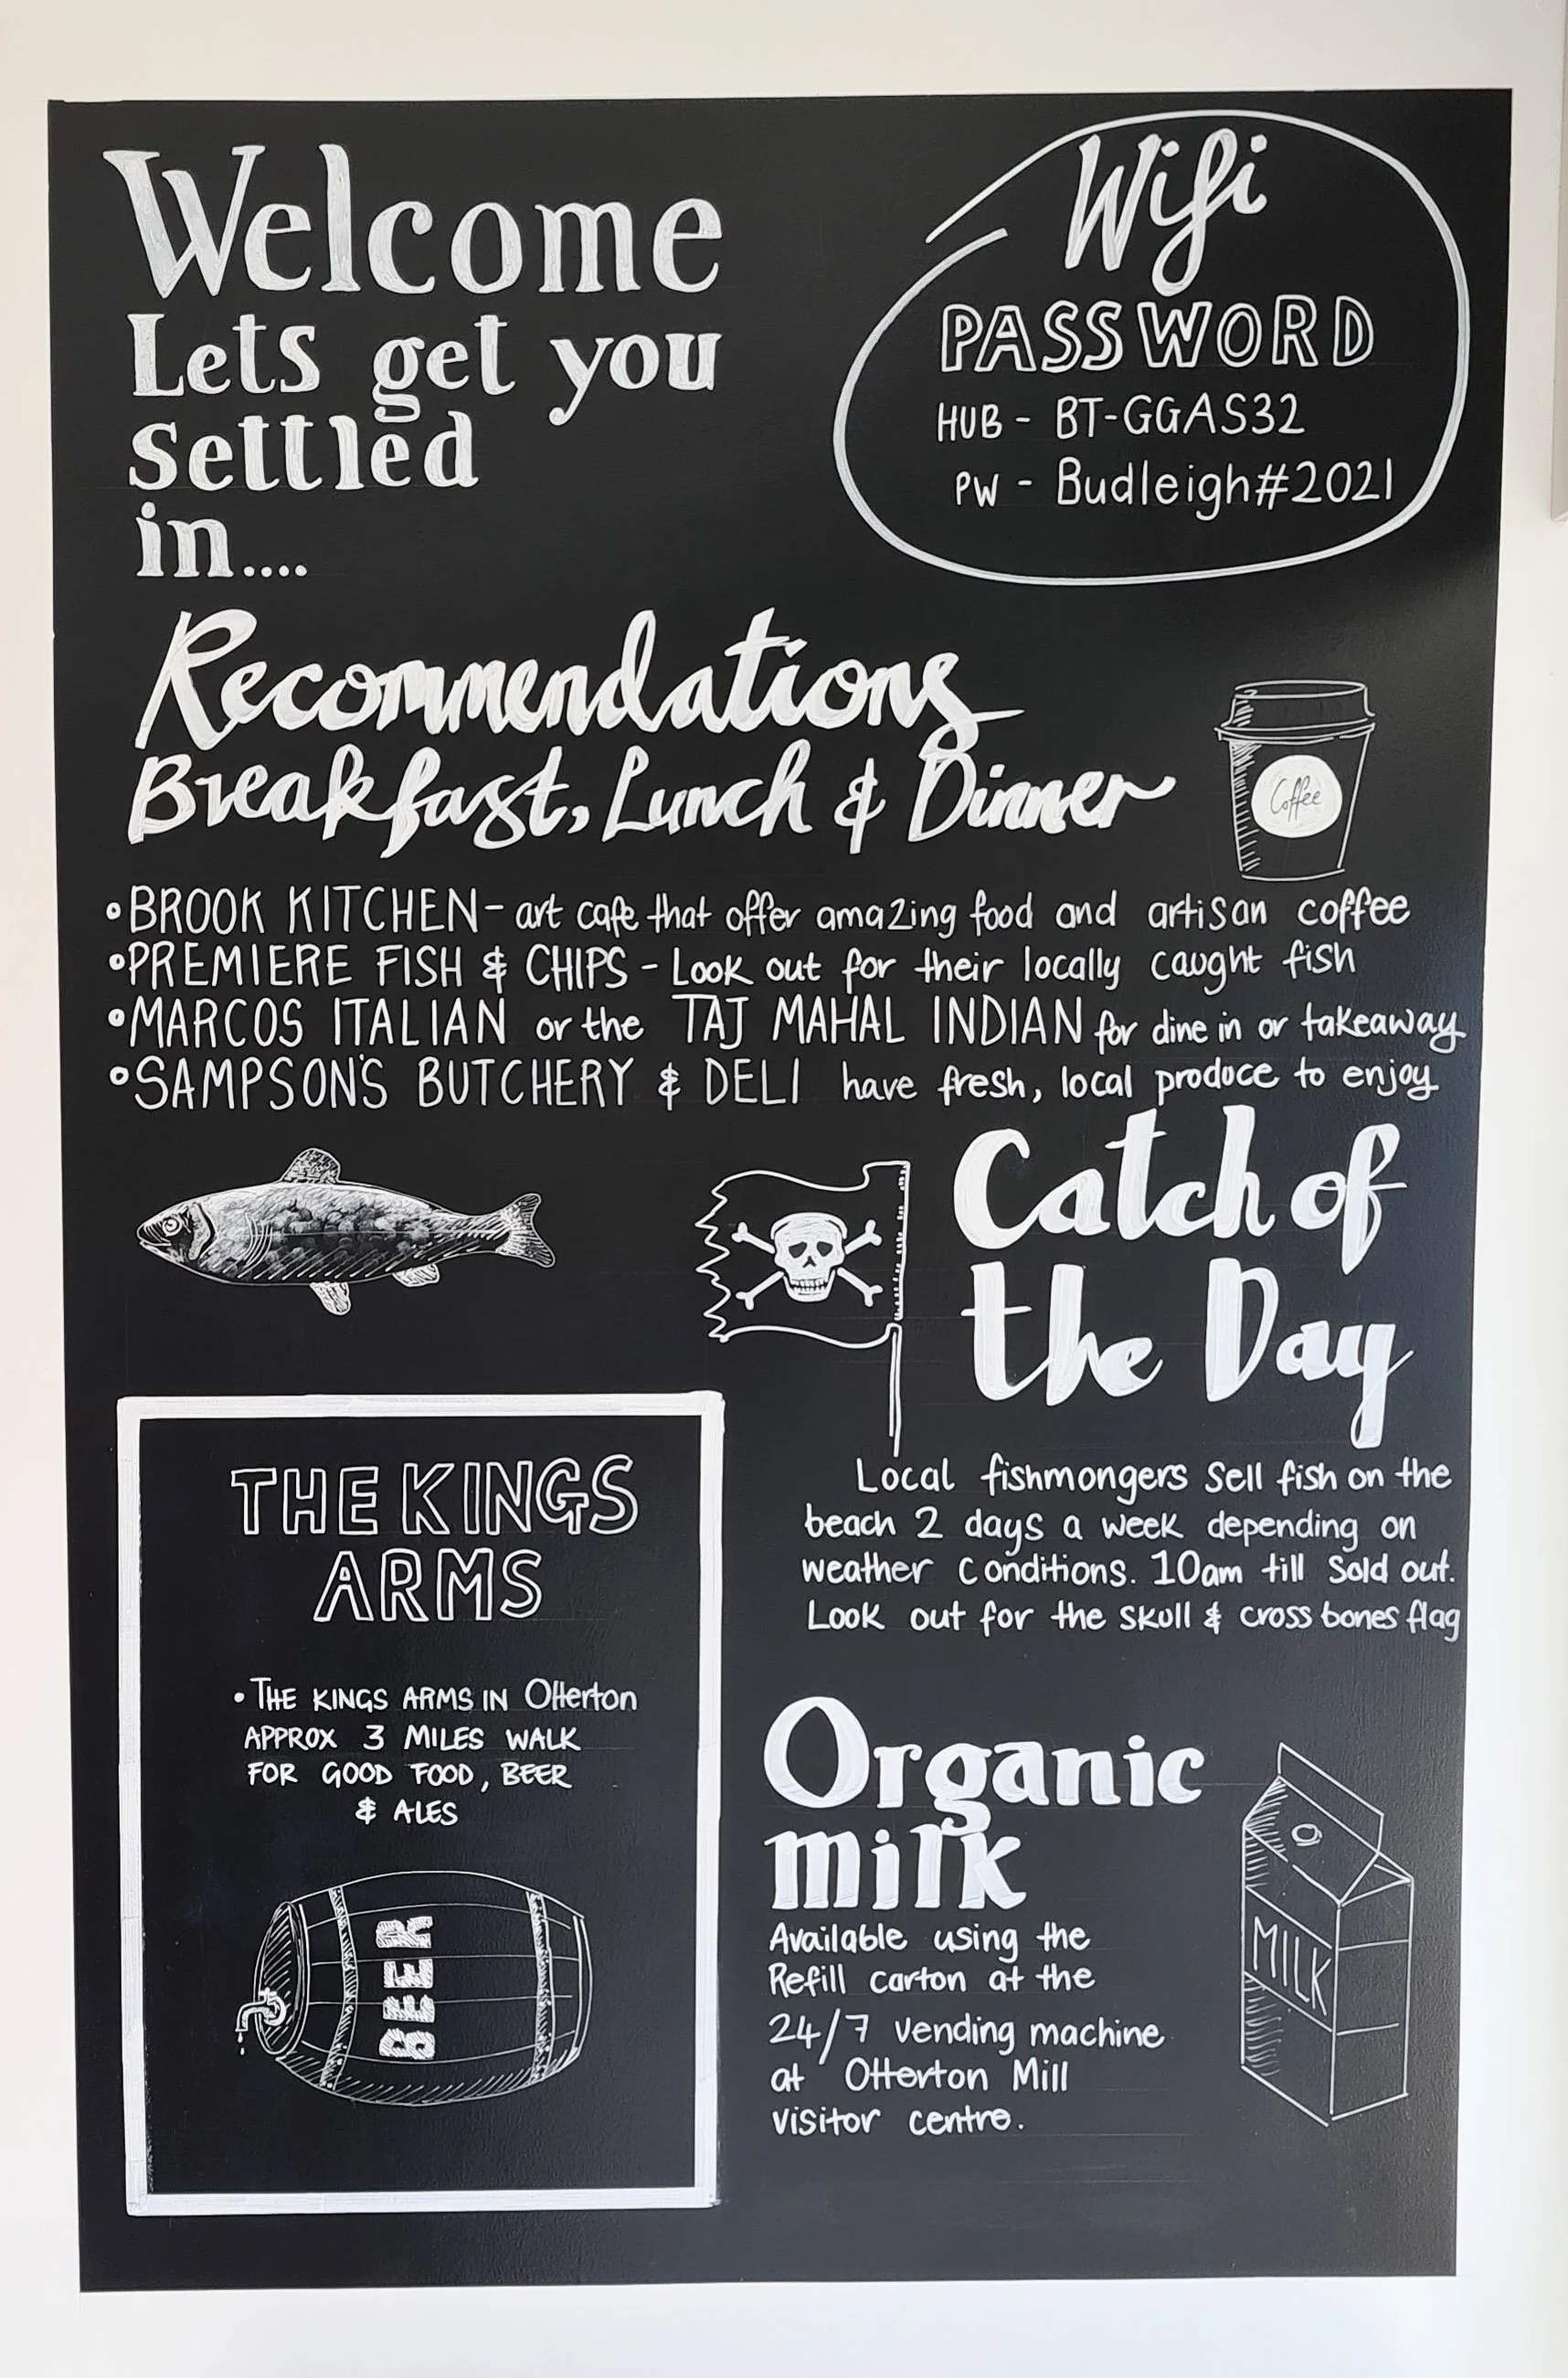 Welcome
Lets get you
settled
in....
Wifi
PASSWORD
HUB - BT-GGAS32
PW - Budleigh#2021
Recommendations
Breakfast, Lunch & Dinner
Coffee
•BROOK KITCHEN - art cafe that offer amazing food and artisan coffee
•PREMIERE FISH & CHIPS - Look out for their locally caught fish
•MARCOS ITALIAN or the TAJ MAHAL INDIAN for dine in or takeaway
•SAMPSON'S BUTCHERY & DELI have fresh, local produce to enjoy
Catch of
the Day
Local fishmongers sell fish on the
beach 2 days a week depending on
weather conditions. 10am till sold out.
Look out for the skull & cross bones flag
THE KINGS
ARMS
• THE KINGS ARMS IN Otterton
APPROX 3 MILES WALK
FOR GOOD FOOD, BEER
& ALES
BEER
Organic
milk
Available using the
Refill carton at the
24/7 vending machine
at Otterton Mill
visitor centre.
MILK